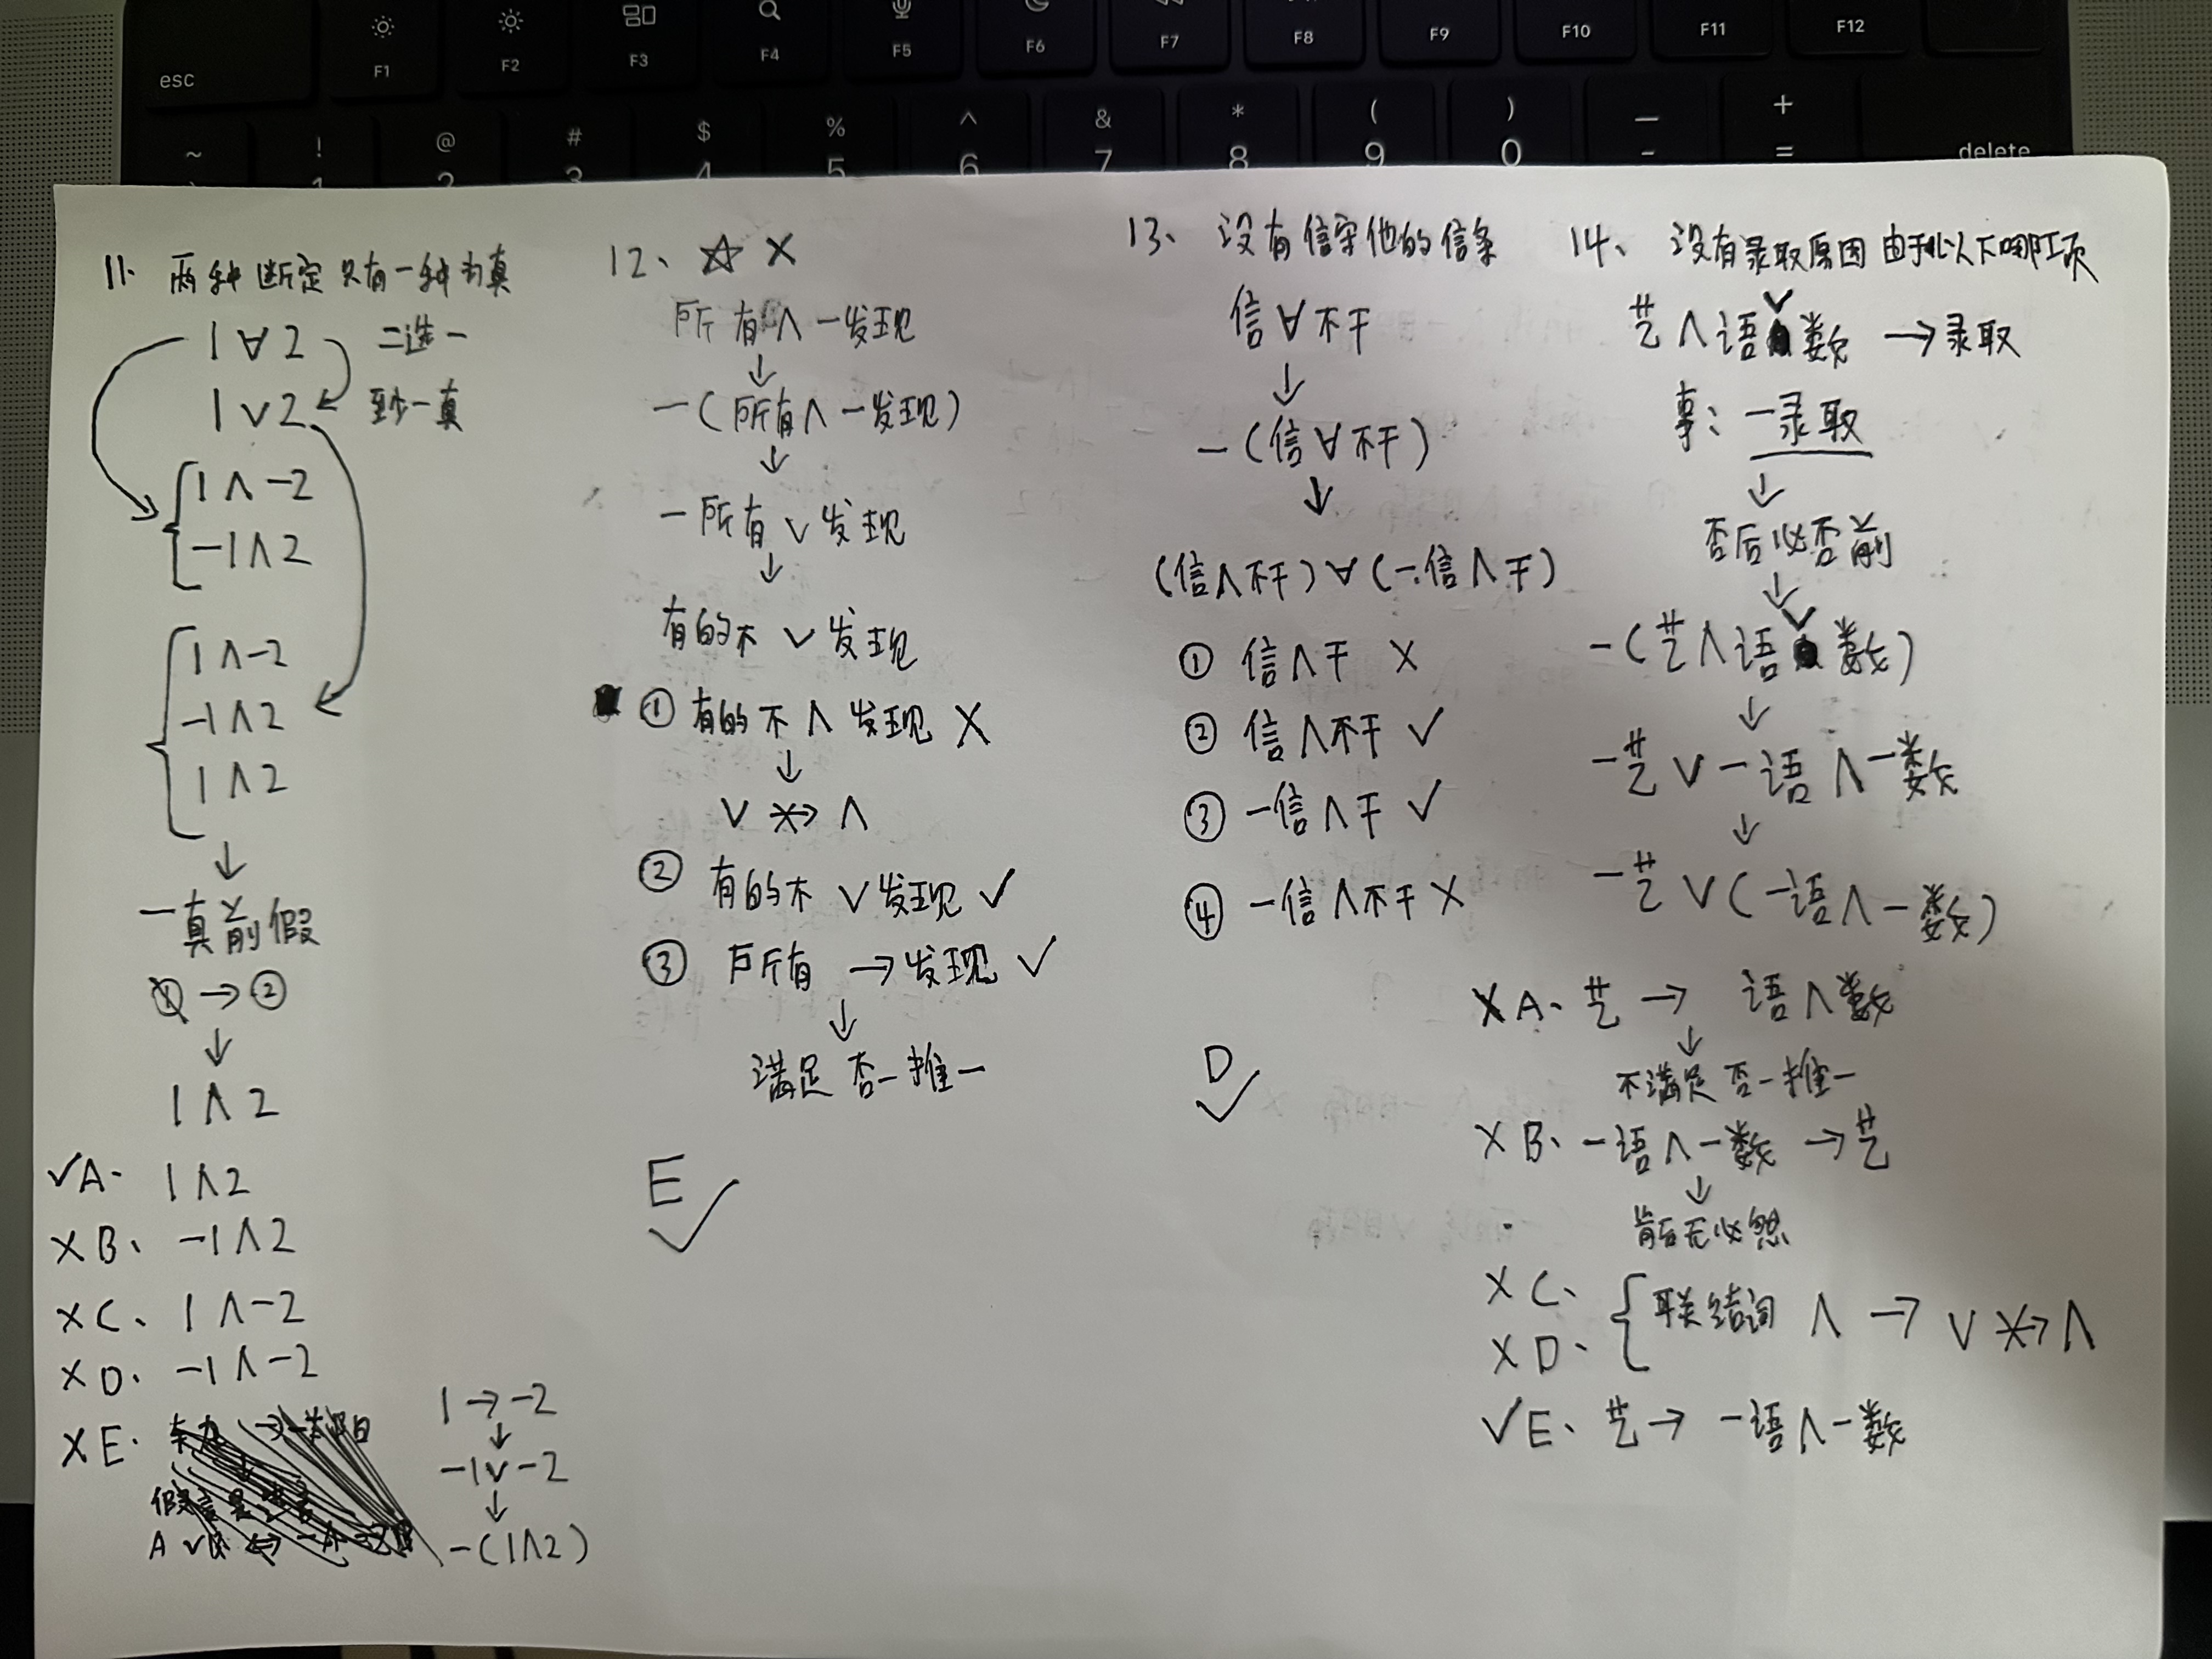 esc
F1
F2
F3
F4
F5
F6
F7
F8
F9
F10
F11
F12
~
!
@
#
3
$
4
%
5
^
6
&
7
*
8
(
9
)
0
—
-
+
=
delete
11. 两种断定只有一种为真
1∀2 二选一
1∨2 至少一真
1∧-2
-1∧2
1∧-2
-1∧2
1∧2
↓
一真前假
→②
↓
1∧2
✓A. 1∧2
×B、 -1∧2
×C、 1∧-2
×D. -1∧-2
×E.
1→-2
↓
-1∨-2
↓
-(1∧2)
12、☆ ×
所有∧-发现
↓
-(所有∧-发现)
↓
-所有∨发现
↓
有的不∨发现
① 有的不∧发现 ×
↓
∨ ×→ ∧
② 有的不∨发现 ✓
③ 所有→发现 ✓
↓
满足否一推一
E ✓
13、没有信守他的信条
信∀不干
↓
-(信∀不干)
↓
(信∧不干)∀(-信∧干)
① 信∧干 ×
② 信∧不干 ✓
③ -信∧干 ✓
④ -信∧不干 ×
D ✓
14、没有录取原因由于以下哪项
艺∧语∨数→录取
事: -录取
↓
否后必否前
↓
-(艺∧语∨数)
↓
-艺∨-语∧-数
↓
-艺∨(-语∧-数)
×A、艺→ 语∧数
↓
不满足否一推一
×B、-语∧-数→艺
↓
肯后无必然
×C、
×D、
联结词 ∧ → ∨ ×→ ∧
✓E、艺→ -语∧-数